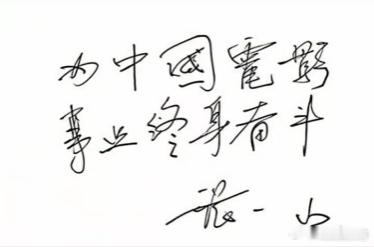 为中國電影
事业终身奋斗
张一山